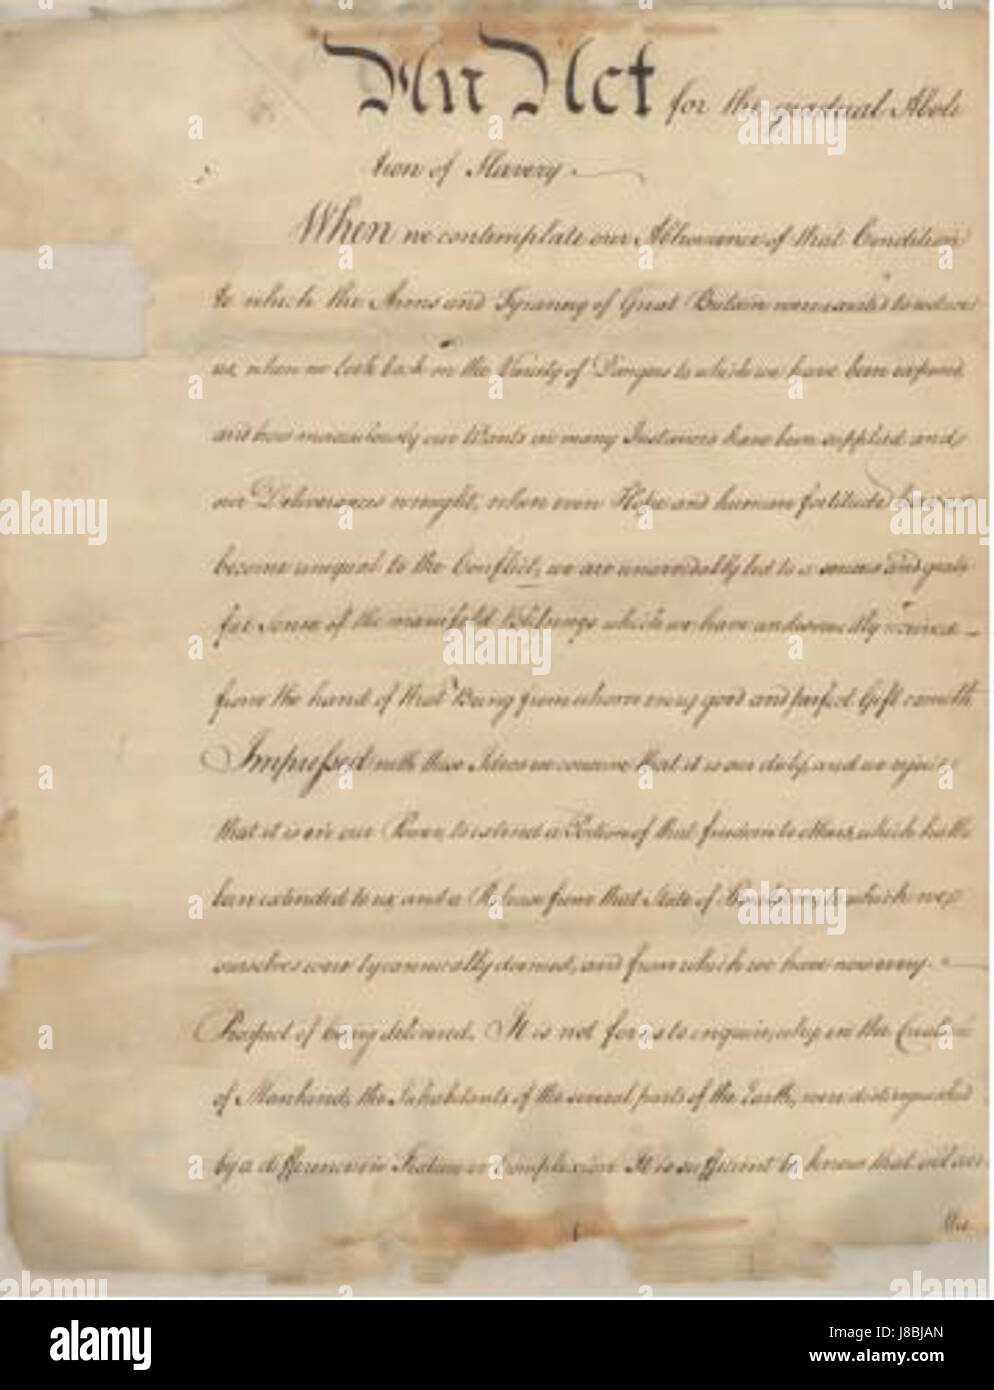 An Act for the gradual Aboli
tion of Slavery
When we contemplate our Abhorrence of that Condition
to which the Arms and Tyranny of Great Britain were exerted to reduce
us, when we look back on the Variety of Dangers to which we have been exposed
and how miraculously our Wants in many Instances have been supplied and
our Deliverances wrought, when even Hope and human fortitude have
become unequal to the Conflict, we are unavoidably led to a serious and grate
ful sense of the manifold Blessings which we have undeservedly received
from the hand of that Being from whom every good and perfect Gift cometh
Impressed with these Ideas we conceive that it is our duty, and we rejoice
that it is in our Power, to extend a Portion of that freedom to others, which hath
been extended to us, and a Release from that State of Thraldom, to which we
ourselves were tyrannically doomed, and from which we have now every
Prospect of being delivered. It is not for us to enquire, why, in the Creation
of Mankind, the Inhabitants of the several parts of the Earth, were distinguished
by a difference in Feature or Complexion. It is sufficient to know that all are
the
alamy
Image ID: J8BJAN
www.alamy.com